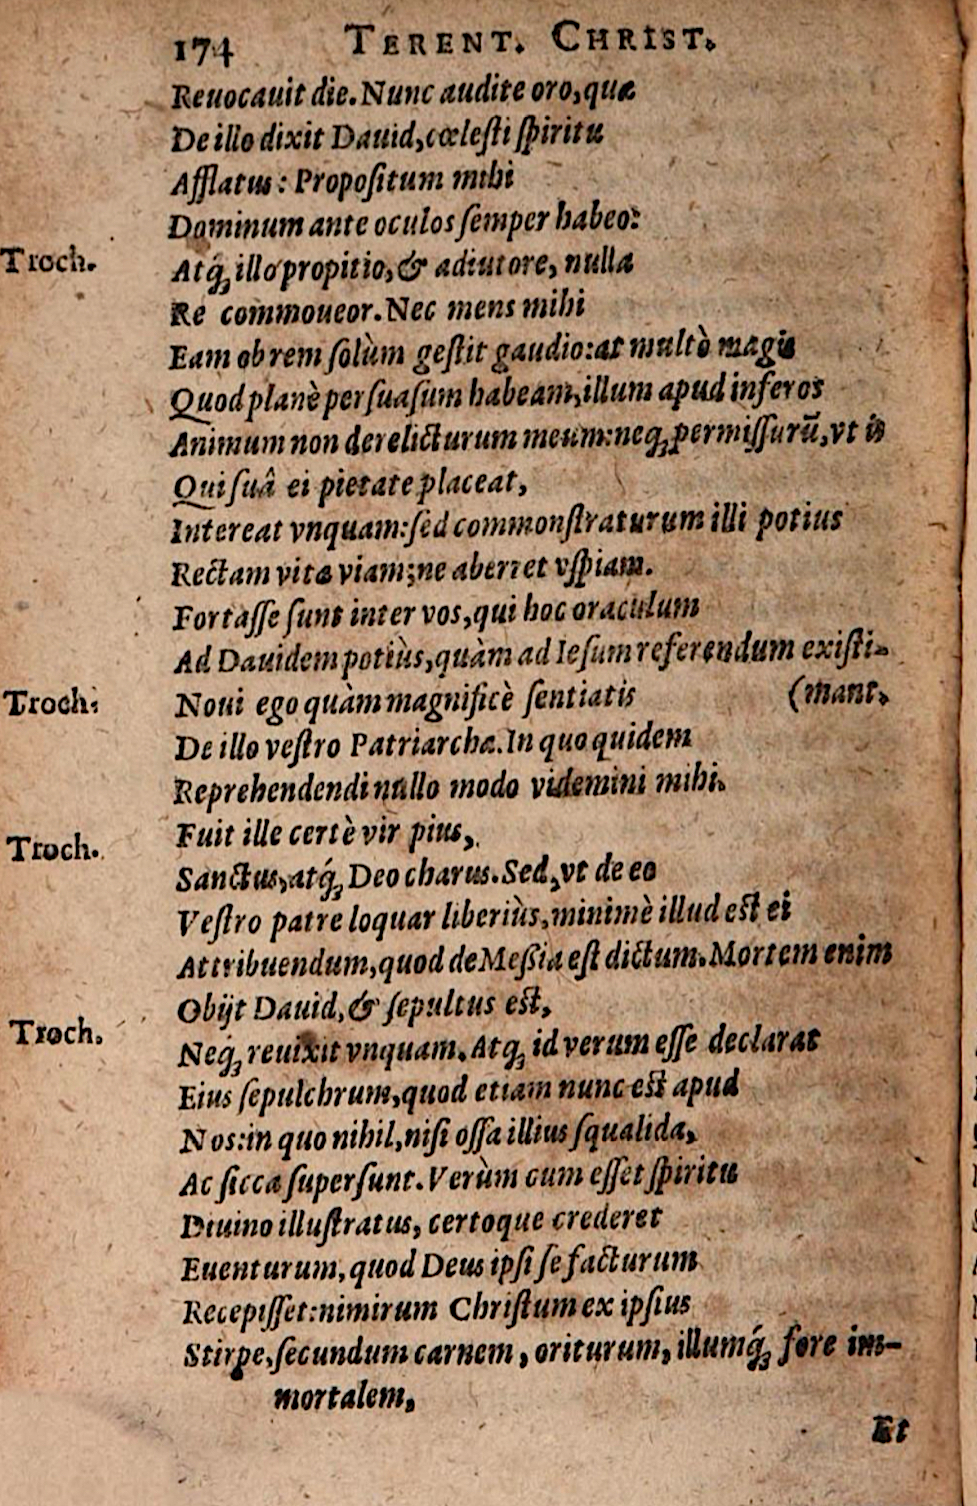 174 TERENT. CHRIST.
Reuocauit die. Nunc audite oro, quæ
De illo dixit Dauid, cœlesti spiritu
Afflatus: Propositum mihi
Dominum ante oculos semper habeo:
Troch. Atq́ꝫ illo propitio, & adiutore, nulla
Re commoueor. Nec mens mihi
Eam ob rem solùm gestit gaudio: at multò magis
Quod planè persuasum habeam, illum apud inferos
Animum non derelicturum meum: neqꝫ permissurũ, vt is
Qui suâ ei pietate placeat,
Intereat vnquam: sed commonstraturum illi potius
Rectam vitæ viam; ne aberret vspiam.
Fortasse sunt inter vos, qui hoc oraculum
Ad Dauidem potiùs, quàm ad Iesum referendum existi-
Troch: Noui ego quàm magnificè sentiatis (mant.
De illo vestro Patriarcha. In quo quidem
Reprehendendi nullo modo videmini mihi.
Troch. Fuit ille certè vir pius,
Sanctus, atq́ꝫ Deo charus. Sed, vt de eo
Vestro patre loquar liberiùs, minimè illud est ei
Attribuendum, quod de Messia est dictum. Mortem enim
Obijt Dauid, & sepultus est,
Troch. Neq́ꝫ reuixit vnquam. Atqꝫ id verum esse declarat
Eius sepulchrum, quod etiam nunc est apud
Nos: in quo nihil, nisi ossa illius squalida,
Ac sicca supersunt. Verùm cum esset spiritu
Diuino illustratus, certoque crederet
Euenturum, quod Deus ipsi se facturum
Recepisset: nimirum Christum ex ipsius
Stirpe, secundum carnem, oriturum, illumq́ꝫ fore im-
mortalem,
Et